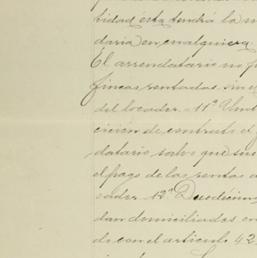 tidad esta tendrá la
daria en cualquiera
El arrendatario no
fincas rentadas sin
del locador. 11ª
cicion de contrato el
datario, salvo que
el pago de las rentas
cador. 12ª Duodécima
dan domiciliadas en
do con el artículo 42